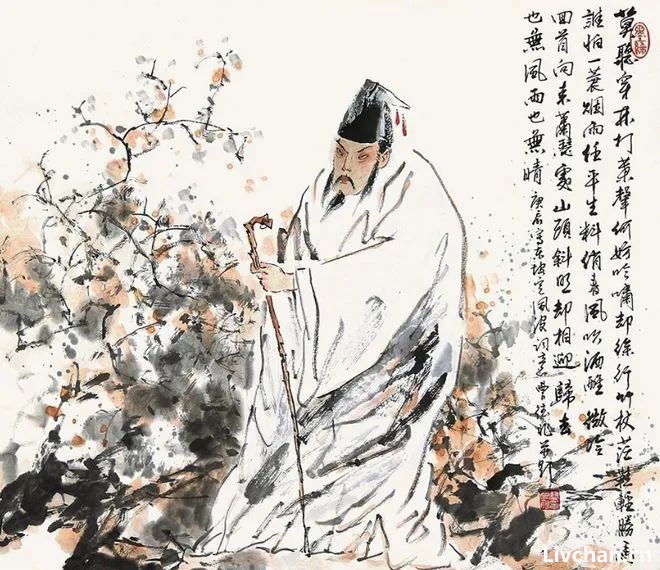 莫聽穿林打葉聲何妨吟嘯却徐行竹杖芒鞋輕勝馬
誰怕一蓑烟雨任平生料峭春風吹酒醒微冷
回首向来蕭瑟處山頭斜照却相迎歸去
也無風雨也無晴 庚辰寫東坡定風波詞意 曹德兆
Livchan.cn